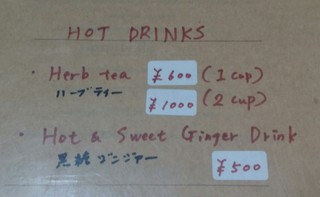 HOT DRINKS
・Herb tea ¥600 (1 cup)
ハーブティー ¥1000 (2 cup)
・Hot & Sweet Ginger Drink
黒糖ジンジャー ¥500